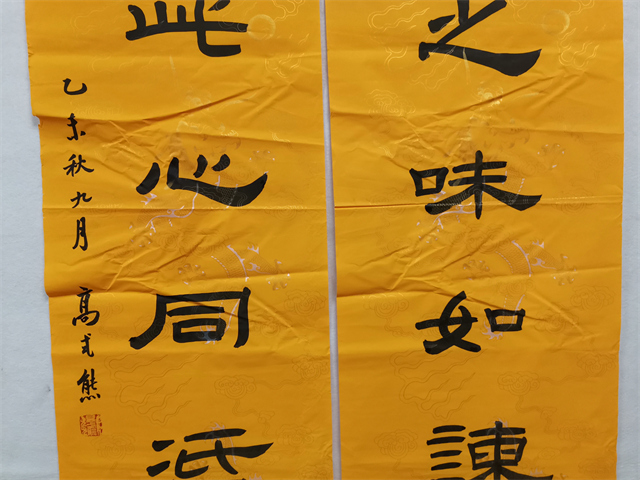 之味如諫
此心同
乙未秋九月 高式熊